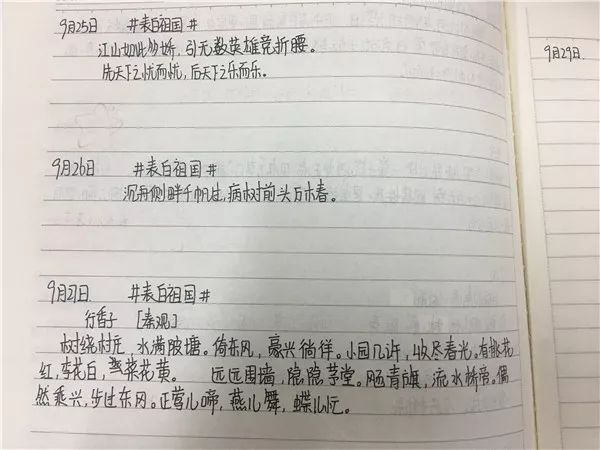 9月25日 #表白祖国#
江山如此多娇，引无数英雄竞折腰。
先天下之忧而忧，后天下之乐而乐。
9月26日 #表白祖国#
沉舟侧畔千帆过，病树前头万木春。
9月27日 #表白祖国#
行香子 [秦观]
树绕村庄，水满陂塘。倚东风，豪兴徜徉。小园几许，收尽春光。有桃花
红，李花白，菜花黄。 远远围墙，隐隐茅堂。飏青旗，流水桥旁。偶
然乘兴，步过东冈。正莺儿啼，燕儿舞，蝶儿忙。
9月29日